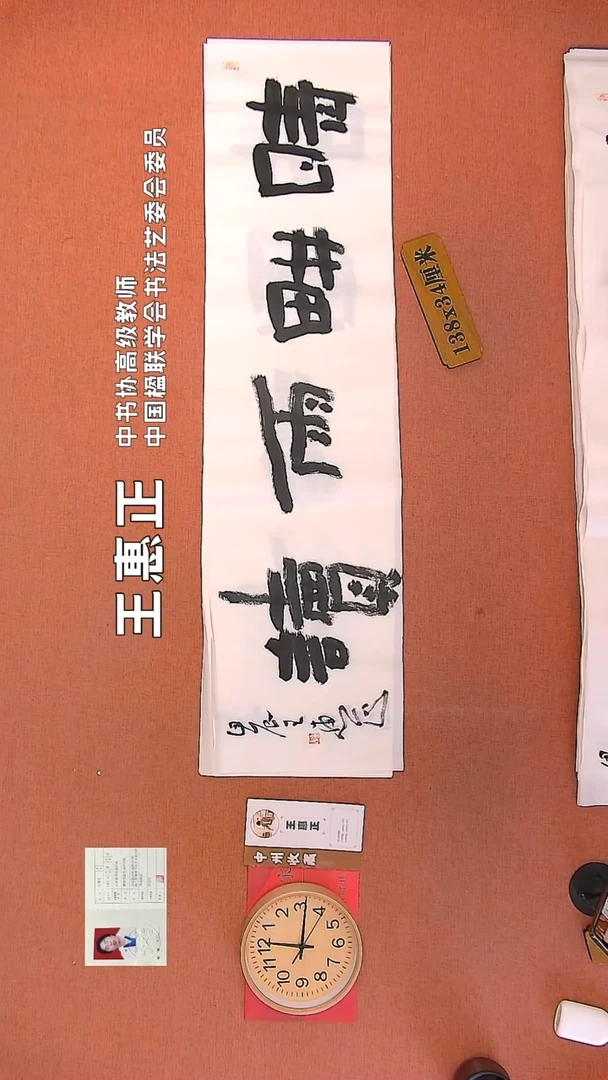 中书协高级教师
中国楹联学会书法艺委会委员
王惠正
晴畊雨讀
138x34厘米
王惠正
中州收藏
12
1
2
3
4
5
6
7
8
9
10
11